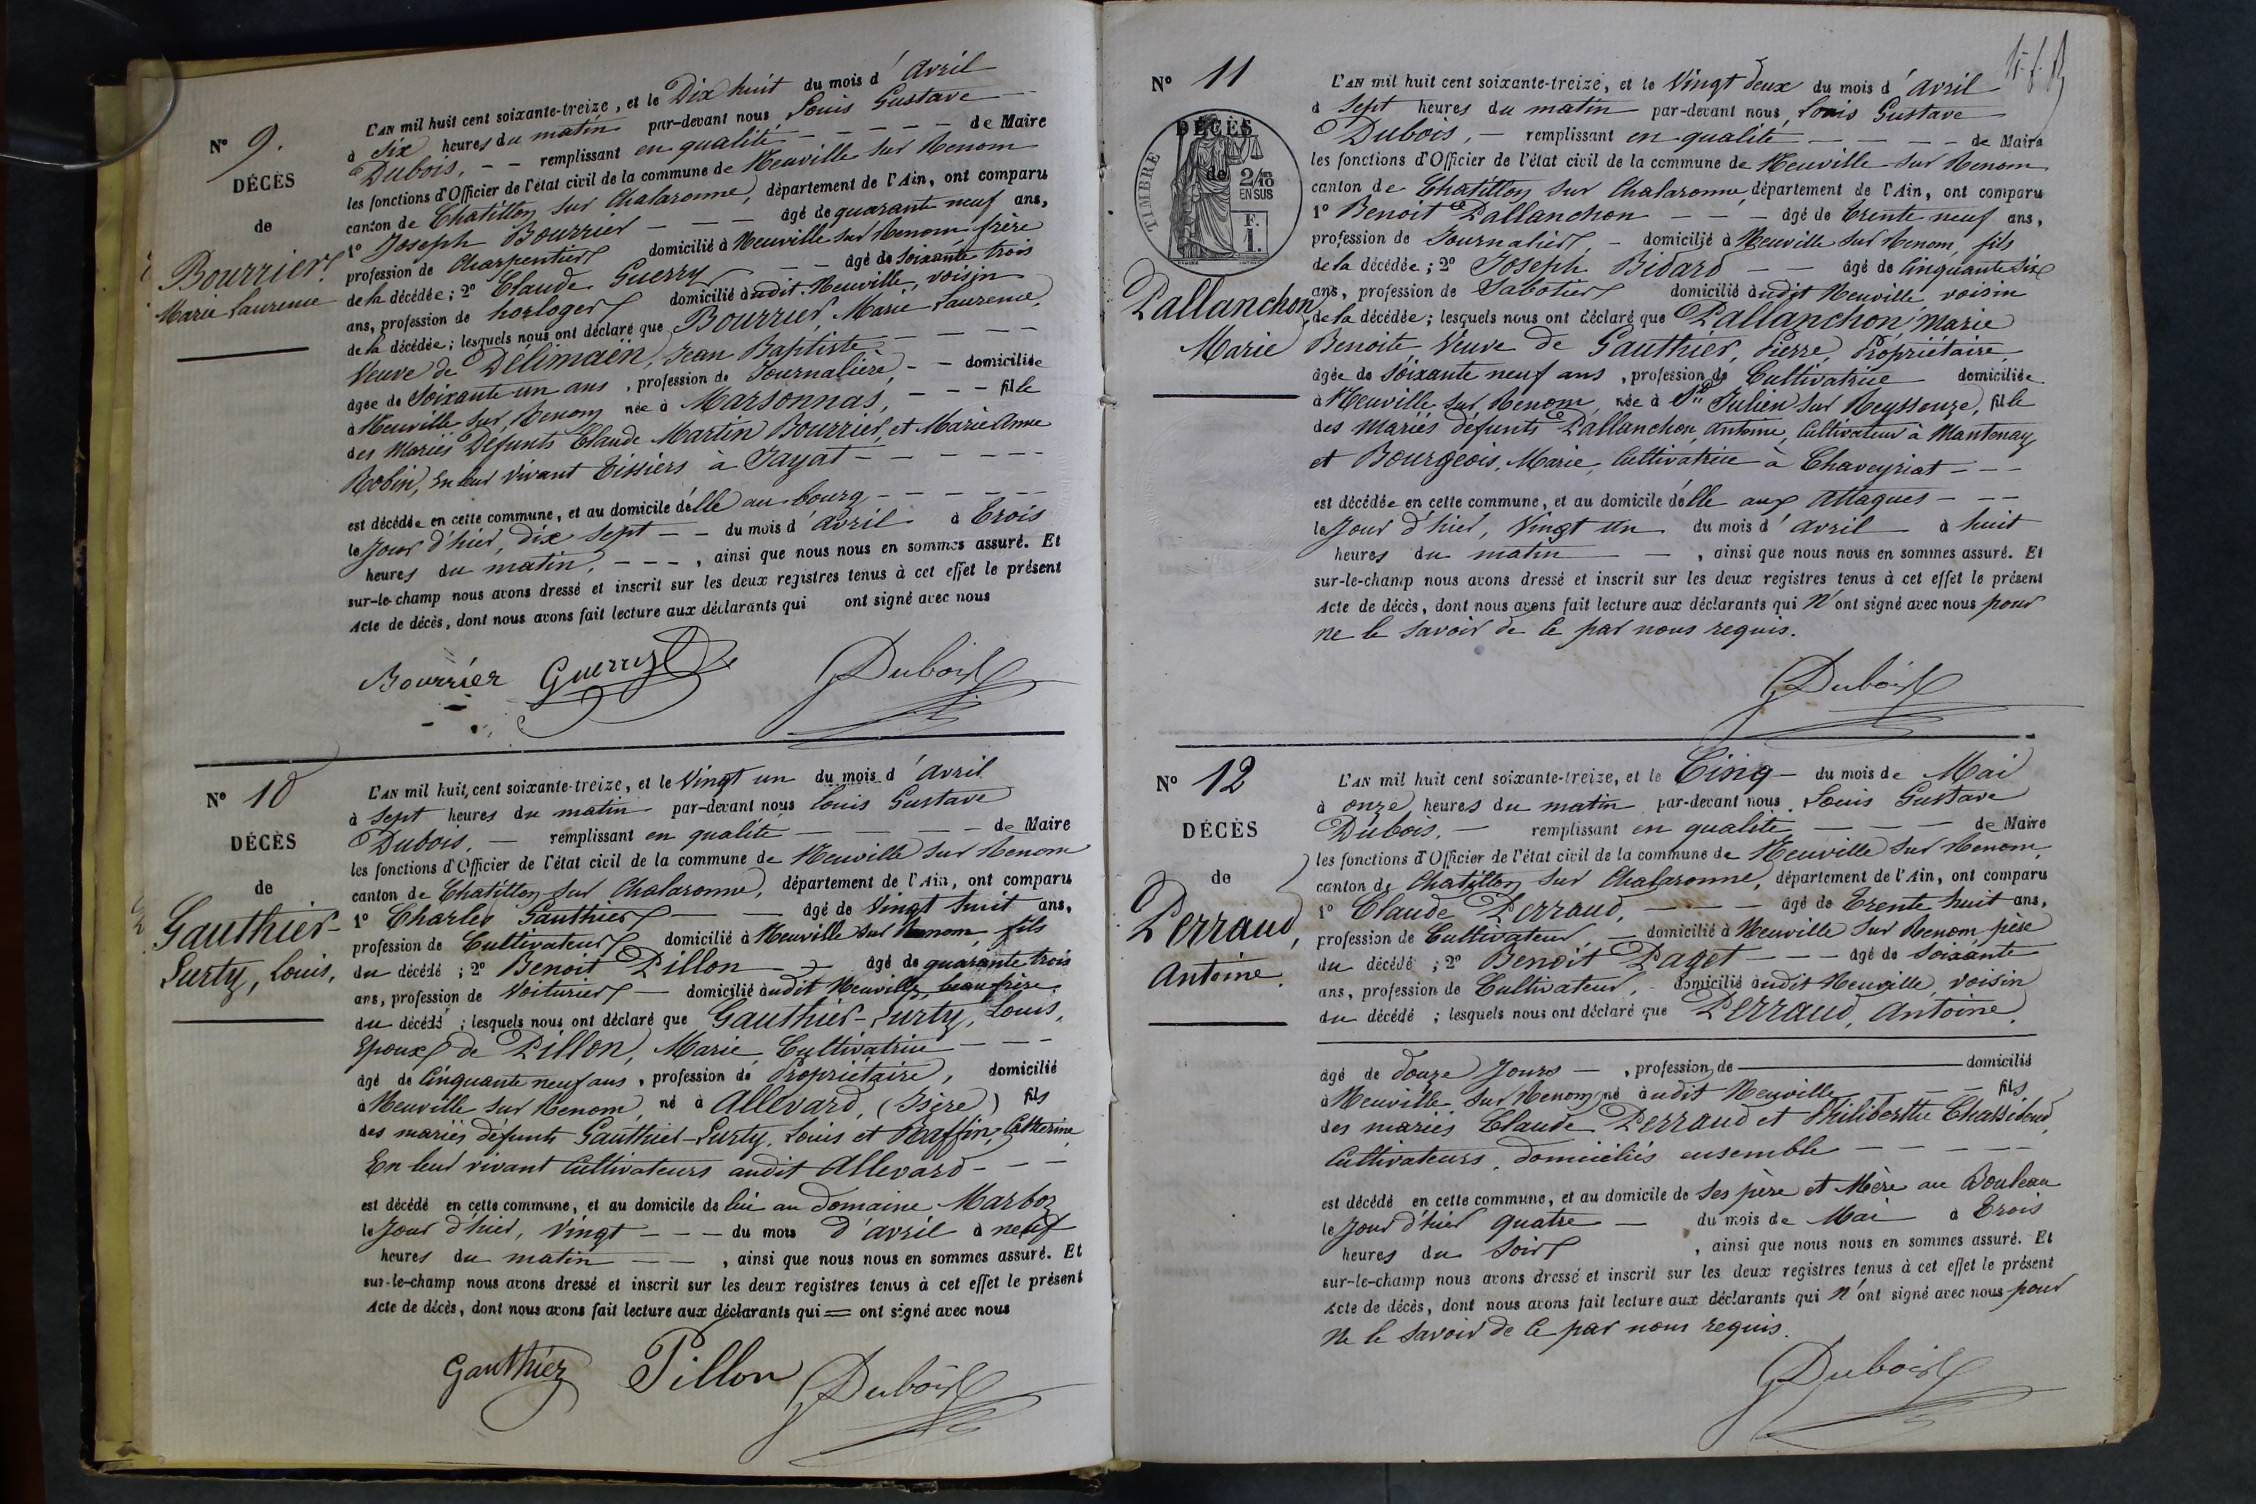 Nº 9.
DÉCÈS
de
Bourrier
Marie Laurence
L'AN mil huit cent soixante-treize, et le Dix huit du mois d'Avril
à six heures du matin par-devant nous Louis Gustave
Dubois, - - remplissant en qualité - - - - - de Maire
les fonctions d'Officier de l'état civil de la commune de Neuville sur Renom
canton de Chatillon sur Chalaronne, département de l'Ain, ont comparu
1º Joseph Bourrier - - âgé de quarante neuf ans,
profession de Charpentier domicilié à Neuville sur Renom frère
de la décédée ; 2º Claude Guerry - - âgé de soixante trois
ans, profession de horloger domicilié audit Neuville, voisin
de la décédée ; lesquels nous ont déclaré que Bourrier, Marie Laurence,
Veuve de Délimaën, Jean Baptiste - - - -
âgée de Soixante un ans, profession de Journalière, - - domiciliée
à Neuville sur Renom née à Marsonnas, - - - fille
des Mariés Défunts Claude Martin Bourrier, et Marie Anne
Robin, en leur vivant Tissiers à Jayat - - - - - -
est décédée en cette commune, et au domicile d'elle au bourg - - - - -
le Jour d'hier, dix sept - - du mois d'avril à Trois
heures du matin, - - - , ainsi que nous nous en sommes assuré. Et
sur-le-champ nous avons dressé et inscrit sur les deux registres tenus à cet effet le présent
Acte de décès, dont nous avons fait lecture aux déclarants qui ont signé avec nous
Bourrier Guerry Dubois
Nº 10
DÉCÈS
de
Gauthier-
Surty, Louis,
L'AN mil huit cent soixante-treize, et le Vingt un du mois d'Avril
à Sept heures du matin par-devant nous Louis Gustave
Dubois, - remplissant en qualité - - - - de Maire
les fonctions d'Officier de l'état civil de la commune de Neuville sur Renom
canton de Chatillon sur Chalaronne, département de l'Ain, ont comparu
1º Charles Gauthier - - âgé de Vingt huit ans,
profession de Cultivateur domicilié à Neuville sur Renom, fils
du décédé ; 2º Benoit Pillon - - âgé de quarante trois
ans, profession de Voiturier - domicilié audit Neuville, beau frère
du décédé ; lesquels nous ont déclaré que Gauthier-Surty, Louis,
Epoux de Pillon, Marie, Cultivatrice - - -
âgé de Cinquante neuf ans, profession de Propriétaire, domicilié
à Neuville sur Renom, né à Allevard, (Isère) fils
des mariés défunts Gauthier-Surty, Louis et Raffin, Catherine,
En leur vivant Cultivateurs audit Allevard - - -
est décédé en cette commune, et au domicile de lui au domaine Marboz
le Jour d'hier, Vingt - - - du mois d'avril à neuf
heures du matin - - , ainsi que nous nous en sommes assuré. Et
sur-le-champ nous avons dressé et inscrit sur les deux registres tenus à cet effet le présent
Acte de décès, dont nous avons fait lecture aux déclarants qui = ont signé avec nous
Gauthier Pillon Dubois
Nº 11
DÉCÈS
de
TIMBRE
2/10 EN SUS
F. 1.
Pallanchon,
Marie
L'AN mil huit cent soixante-treize, et le Vingt deux du mois d'Avril
à Sept heures du matin par-devant nous Louis Gustave
Dubois, - remplissant en qualité - - - - de Maire
les fonctions d'Officier de l'état civil de la commune de Neuville sur Renom
canton de Chatillon sur Chalaronne, département de l'Ain, ont comparu
1º Benoit Pallanchon - - - âgé de Trente neuf ans,
profession de Journalier, - domicilié à Neuville sur Renom, fils
de la décédée ; 2º Joseph Bidard - - âgé de Cinquante six
ans, profession de Sabotier domicilié audit Neuville voisin
de la décédée ; lesquels nous ont déclaré que Pallanchon Marie
Benoite Veuve de Gauthier, Pierre, Propriétaire,
âgée de Soixante neuf ans, profession de Cultivatrice domiciliée
à Neuville sur Renom, née à St Julien sur Reyssouze, fille
des Mariés défunts Pallanchon, Antoine, Cultivateur à Mantenay
et Bourgeois, Marie, Cultivatrice à Chaveyriat - - -
est décédée en cette commune, et au domicile d'elle aux Attaques - - -
le Jour d'hier, Vingt un du mois d'avril à huit
heures du matin - - , ainsi que nous nous en sommes assuré. Et
sur-le-champ nous avons dressé et inscrit sur les deux registres tenus à cet effet le présent
Acte de décès, dont nous avons fait lecture aux déclarants qui n'ont signé avec nous pour
ne le savoir de ce par nous requis.
Dubois
Nº 12
DÉCÈS
de
Perraud,
Antoine.
L'AN mil huit cent soixante-treize, et le Cinq - du mois de Mai
à onze heures du matin par-devant nous Louis Gustave
Dubois, - remplissant en qualité - - - de Maire
les fonctions d'Officier de l'état civil de la commune de Neuville sur Renom,
canton de Chatillon sur Chalaronne, département de l'Ain, ont comparu
1º Claude Perraud, - - - âgé de Trente huit ans,
profession de Cultivateur, - domicilié à Neuville sur Renom père
du décédé ; 2º Benoit Paget - - - âgé de Soixante
ans, profession de Cultivateur, - domicilié audit Neuville, voisin
du décédé ; lesquels nous ont déclaré que Perraud, Antoine,
âgé de douze Jours - , profession de domicilié
à Neuville sur Renom, né audit Neuville - - fils
des mariés Claude Perraud et Philiberthe
Cultivateurs, domiciliés ensemble - - - - -
est décédé en cette commune, et au domicile de ses père et Mère au Bouleau
le Jour d'hier quatre - du mois de Mai à Trois
heures du Soir , ainsi que nous nous en sommes assuré. Et
sur-le-champ nous avons dressé et inscrit sur les deux registres tenus à cet effet le présent
Acte de décès, dont nous avons fait lecture aux déclarants qui n'ont signé avec nous pour
ne le savoir de ce par nous requis.
Dubois